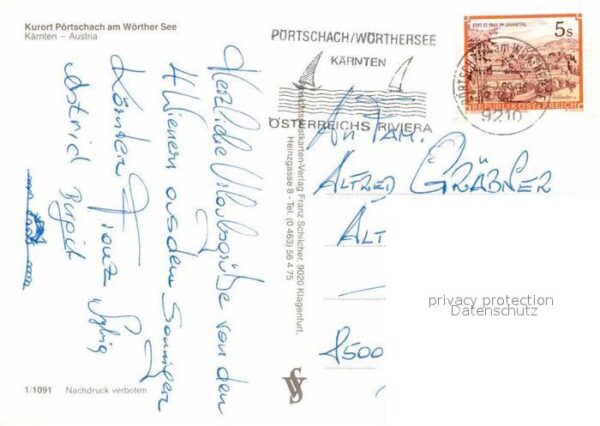 Kurort Pörtschach am Wörther See
Kärnten – Austria
PÖRTSCHACH/WÖRTHERSEE
KÄRNTEN
ÖSTERREICHS RIVIERA
STIFT ST. PAUL IM LAVANTTAL
5s
REPUBLIK ÖSTERREICH
9210
Herzliche Urlaubsgrüße von den
4 Wienern aus dem Sonnigen
Kärnten Franz Sylvia
Astrid Birgit
Ansichtskarten-Verlag Franz Schilcher, 9020 Klagenfurt,
Heinzgasse 8 - Tel. (0 463) 56 4 75
AN FAM.
ALFRED GRÄBNER
ALT
8500
privacy protection
Datenschutz
1/1091 Nachdruck verboten